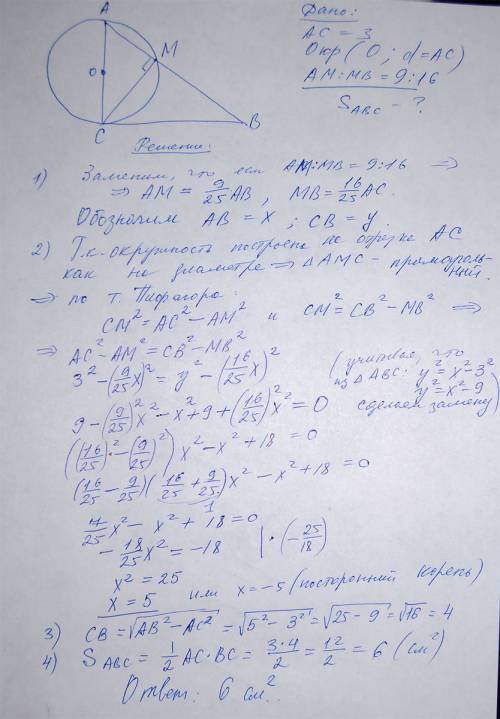 Дано:
AC = 3
Окр (O ; d=AC)
AM:MB = 9:16
S_ABC - ?
A
M
O
C
B
Решение:
1) Заметим, что если AM:MB = 9:16 =>
=> AM = 9/25 AB, MB = 16/25 AC.
Обозначим AB = x ; CB = y.
2) Т.к. окружность построена на отрезке AC
как на диаметре => △AMC - прямоуголь-
ный.
=> по т. Пифагора:
CM² = AC² - AM² и CM² = CB² - MB² =>
=> AC² - AM² = CB² - MB²
3² - (9/25 x)² = y² - (16/25 x)² (учитывая, что
из △ABC: y² = x² - 3²
y² = x² - 9
сделаем замену)
9 - (9/25)² x² - x² + 9 + (16/25)² x² = 0
((16/25)² - (9/25)²) x² - x² + 18 = 0
(16/25 - 9/25)(16/25 + 9/25) x² - x² + 18 = 0
1
7/25 x² - x² + 18 = 0
- 18/25 x² = -18 | · (- 25/18)
x² = 25
x = 5 или x = -5 (посторонний корень)
3) CB = √(AB² - AC²) = √(5² - 3²) = √(25 - 9) = √16 = 4
4) S_ABC = 1/2 AC · BC = 3·4/2 = 12/2 = 6 (см²)
Ответ: 6 см².